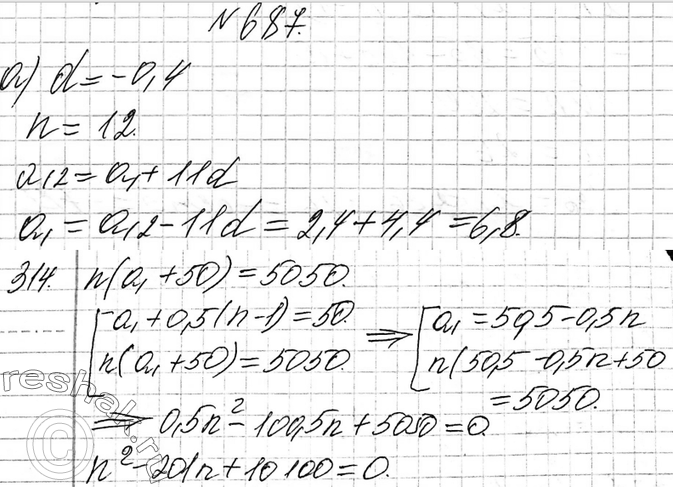 №687.
а) d=-0,4
n=12.
a12=a1+11d
a1=a12-11d=2,4+4,4=6,8.
314. n(a1+50)=5050.
[a1+0,5(n-1)=50. => [a1=50,5-0,5n
n(a1+50)=5050. n(50,5-0,5n+50
=5050.
=> 0,5n²-100,5n+5050=0.
n²-201n+10100=0.
reshak.ru